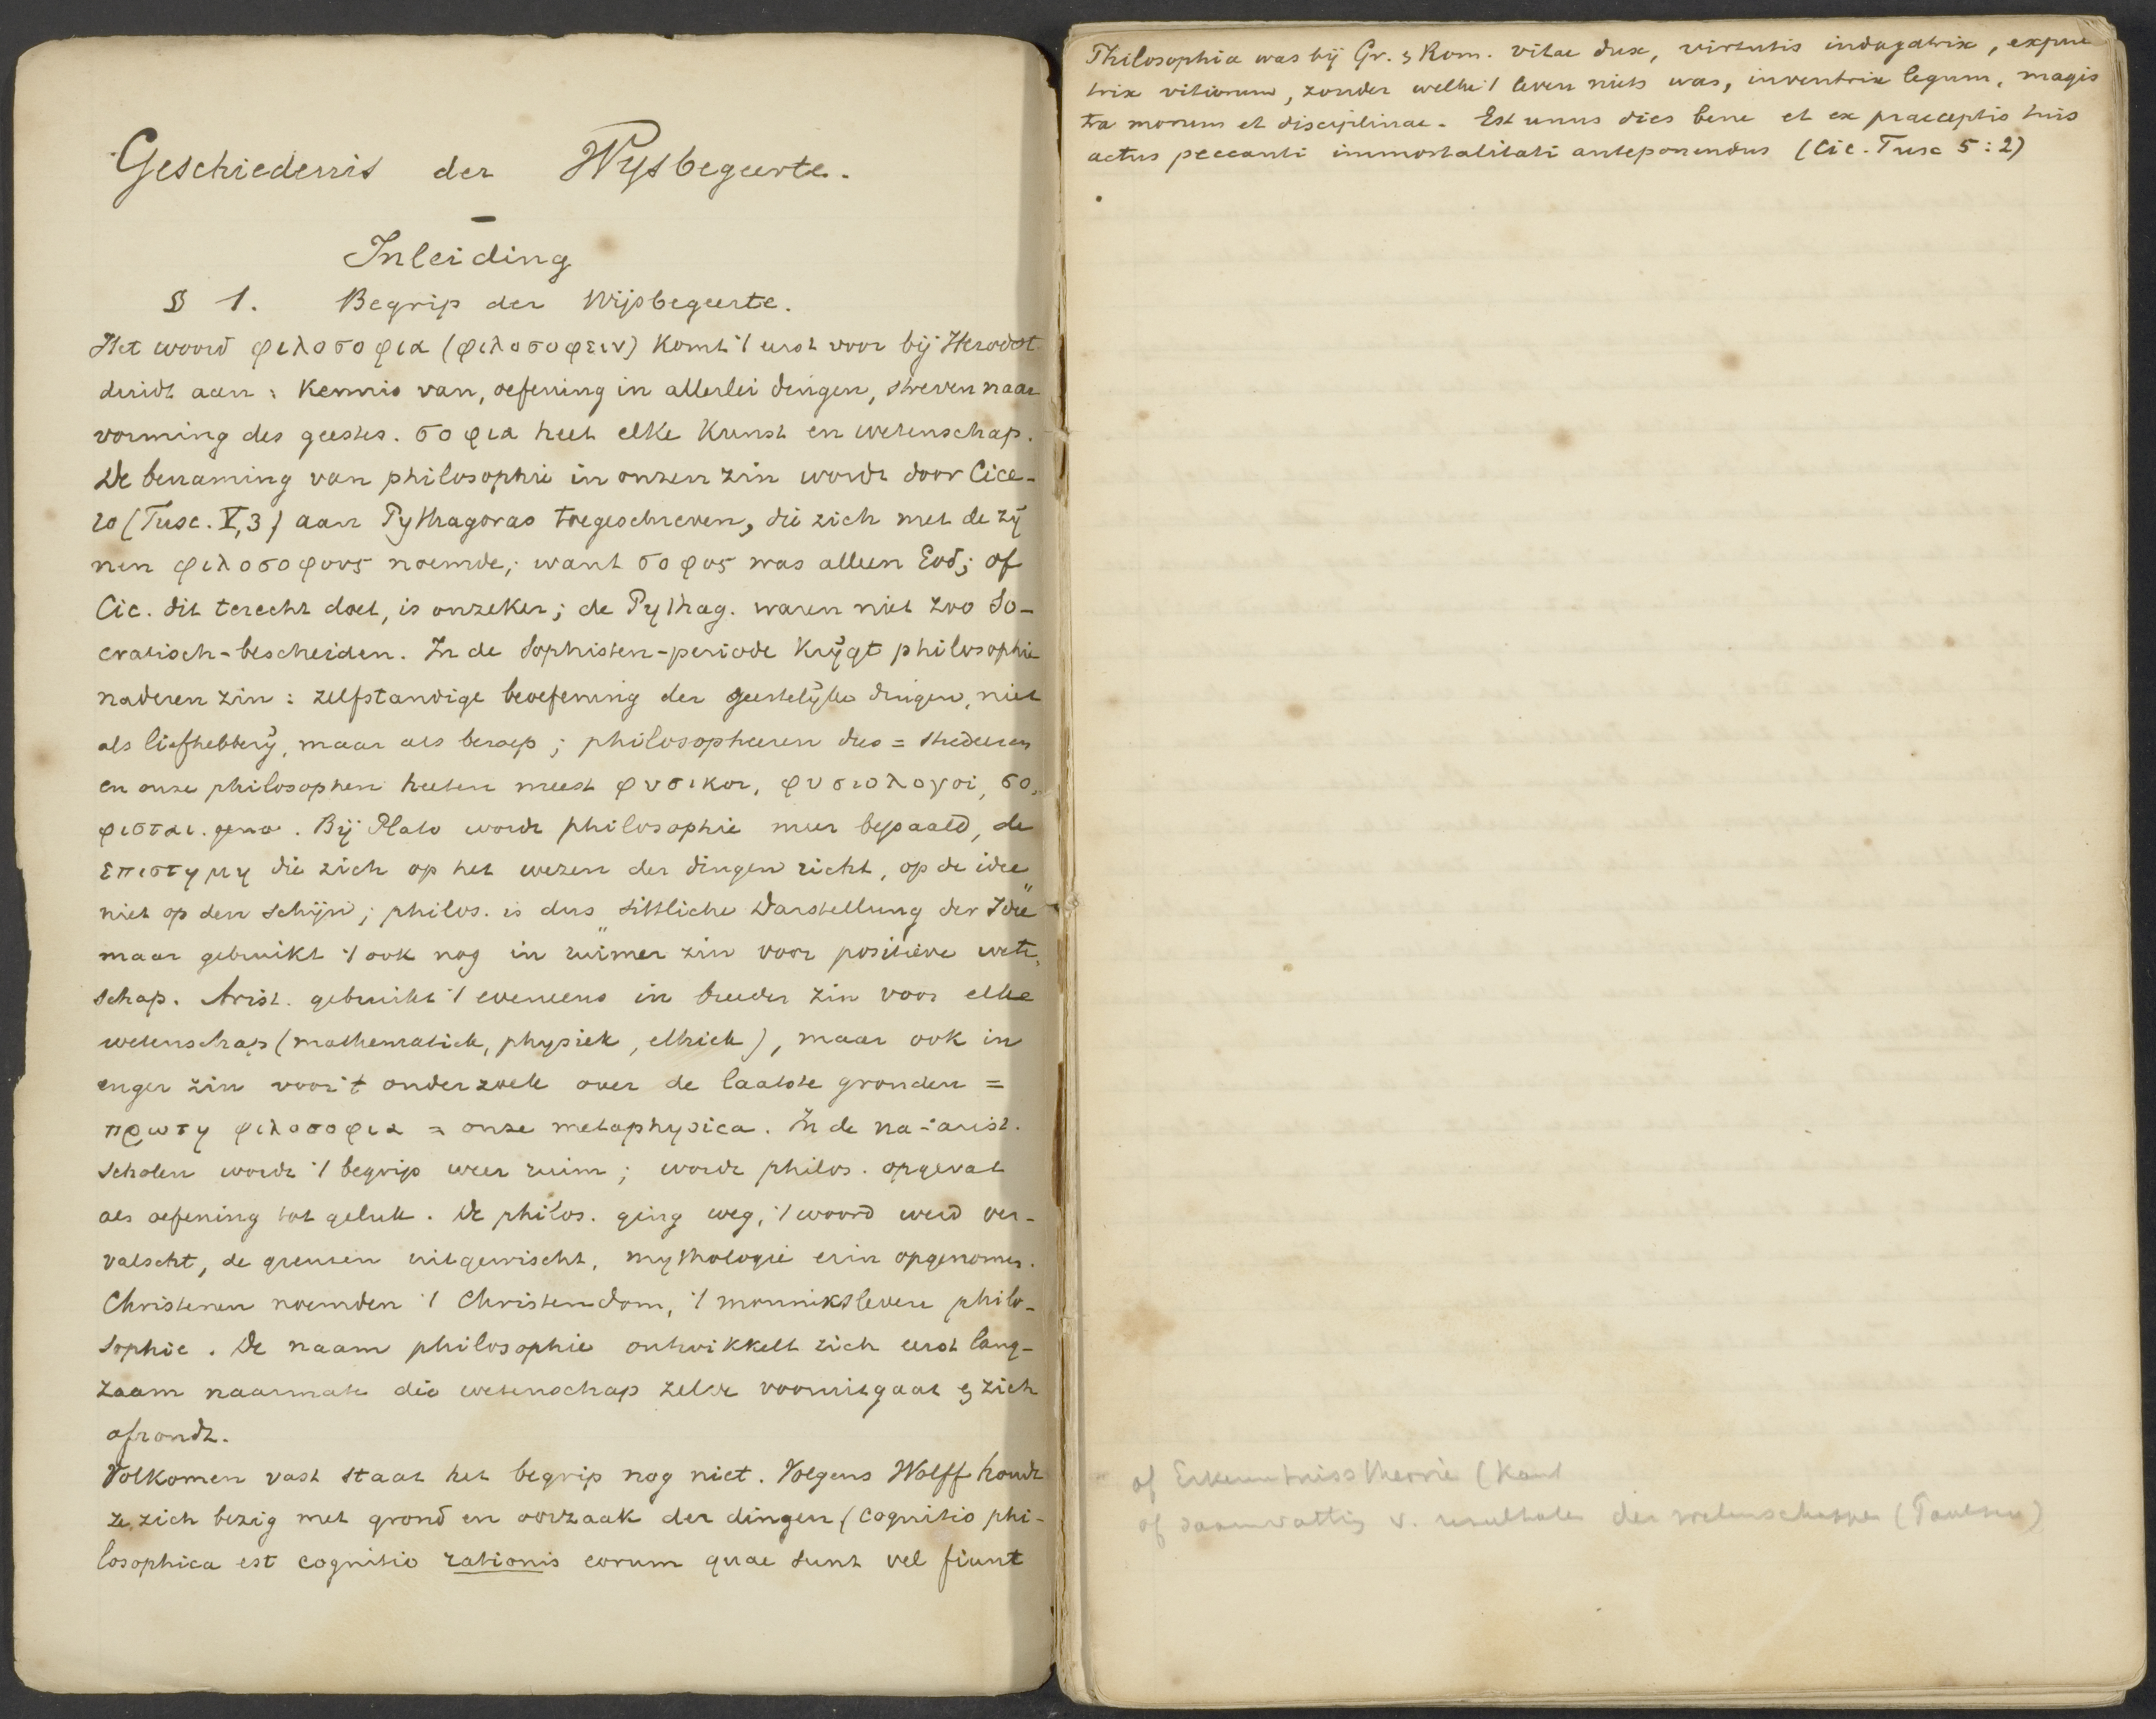 Geschiedenis der Wysbegeerte.
Inleiding
§ 1. Begrip der Wijsbegeerte.
Het woord φιλοσοφια (φιλοσοφειν) komt 't eerst voor bij Herodot
duidt aan: Kennis van, oefening in allerlei dingen, streven naar
vorming des geestes. σοφια heet elke kunst en wetenschap.
De benaming van philosophie in onzen zin wordt door Cice-
ro (Tusc. V, 3) aan Pythagoras toegeschreven, die zich met de zij
nen φιλοσοφους noemde; want σοφος was alleen God; of
Cic. dit terecht doet, is onzeker; de Pythag. waren niet zoo So-
cratisch-bescheiden. In de Sophisten-periode krijgt philosophie
naderen zin: zelfstandige beoefening der geestelijke dingen, niet
als liefhebberij, maar als beroep; philosopheeren dus = studeeren
en onze philosophen heeten meest φυσικοι, φυσιολογοι, σο,
φισται. gena. Bij Plato wordt philosophie meer bepaald, de
επιστημη die zich op het wezen der dingen richt, op de idee
niet op den schijn; philos. is dus "sittliche Darstellung der Idee"
maar gebruikt 't ook nog in ruimer zin voor positieve wete,
schap. Arist. gebruikt 't eveneens in breeder zin voor elke
wetenschap (mathematick, physiek, ethiek), maar ook in
enger zin voor 't onderzoek over de laatste gronden =
πρωτη φιλοσοφια = onze metaphysica. In de na-arist.
scholen wordt 't begrip weer ruim; wordt philos. opgevat
als oefening tot geluk. De philos. ging weg, 't woord werd ver-
valscht, de grenzen uitgewischt, mythologie erin opgenomen.
Christenen noemden 't Christendom, 't monniksleven philo-
sophie. De naam philosophie ontwikkelt zich eerst lang-
zaam naarmate die wetenschap zelve vooruitgaat & zich
afrondt.
Volkomen vast staat het begrip nog niet. Volgens Wolff houdt
ze zich bezig met grond en oorzaak der dingen (cognitio phi-
losophica est cognitio rationis eorum quae sunt vel fiunt
Philosophia was bij Gr. & Rom. vitae dux, virtutis indagatrix, expul
trix vitiorum, zonder welke 't leven niets was, inventrix legum, magis
tra morum et disciplinae. Est unus dies bene et ex praeceptis tuis
actus peccanti immortalitati anteponendus (Cic. Tusc 5:2)
of Erkenntnisstheorie (Kant
of saamvatting v. resultaten der wetenschappen (Paulsen)